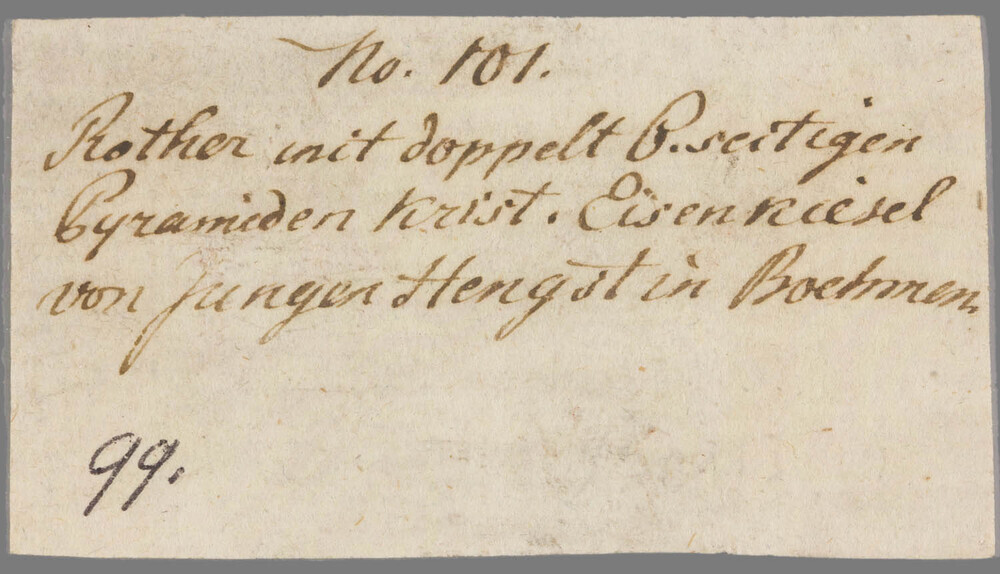 No. 101.
Rother mit doppelt 6.seitigen
Pyramiden Krist. Eisenkiesel
von Junger Hengst in Boehmen.
99.